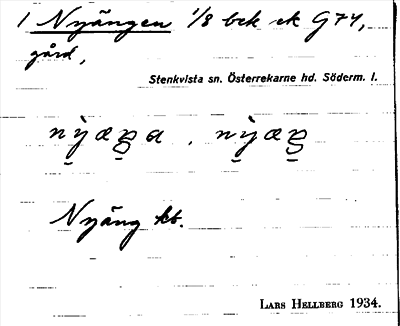 1 Nyängen 1/8 bek ek G74,
gård,
Stenkvista sn. Österrekarne hd. Söderm. l.
Nyäng kb.
LARS HELLBERG 1934.